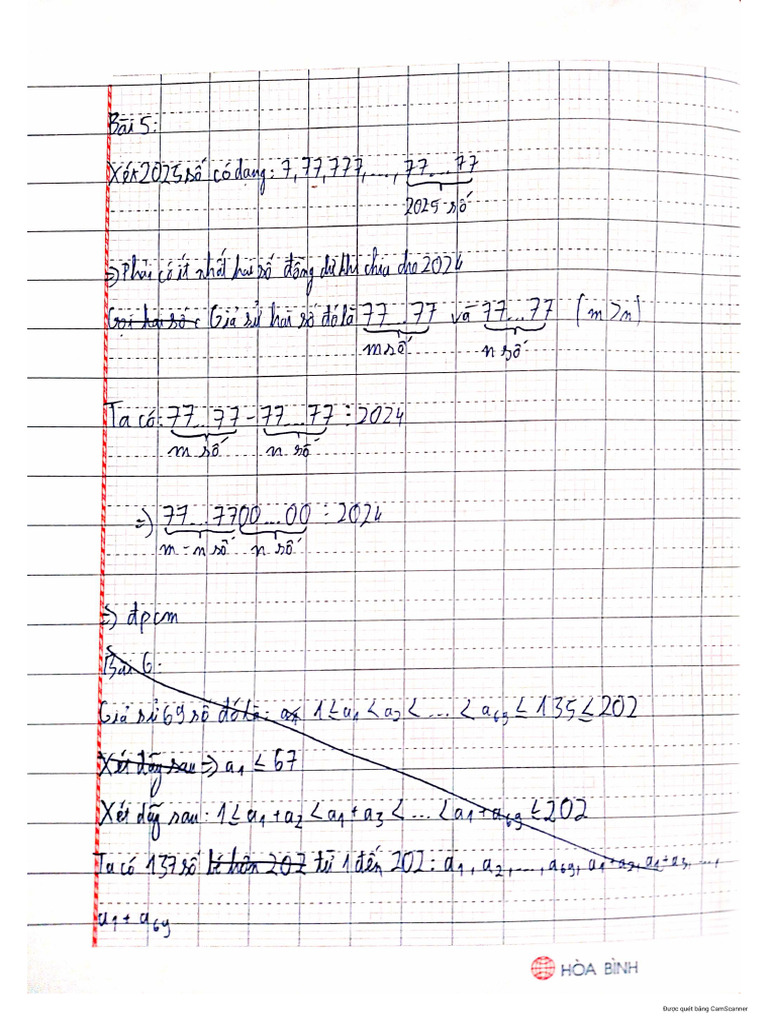 Bài 5:
Xét 2025 số có dạng: 7, 77, 777, ..., 77...77
2025 số
=> Phải có ít nhất hai số đồng dư khi chia cho 2024
Gọi hai số: Giả sử hai số đó là 77...77 và 77...77 (m > n)
m số n số
Ta có: 77...77 - 77...77 ⋮ 2024
m số n số
=> 77...7700...00 ⋮ 2024
m - n số n số
=> đpcm
Bài 6:
Giả sử 69 số đó là: a₁ 1 ≤ a₁ < a₂ < ... < a₆₉ ≤ 135 ≤ 202
Xét dãy sau => a₁ ≤ 67
Xét dãy sau: 1 ≤ a₁ + a₂ < a₁ + a₃ < ... < a₁ + a₆₉ ≤ 202
Ta có 137 số bé hơn 202 từ 1 đến 202: a₁, a₂, ..., a₆₉, a₁ + a₂, a₁ + a₃, ...,
a₁ + a₆₉
HÒA BÌNH
Được quét bằng CamScanner